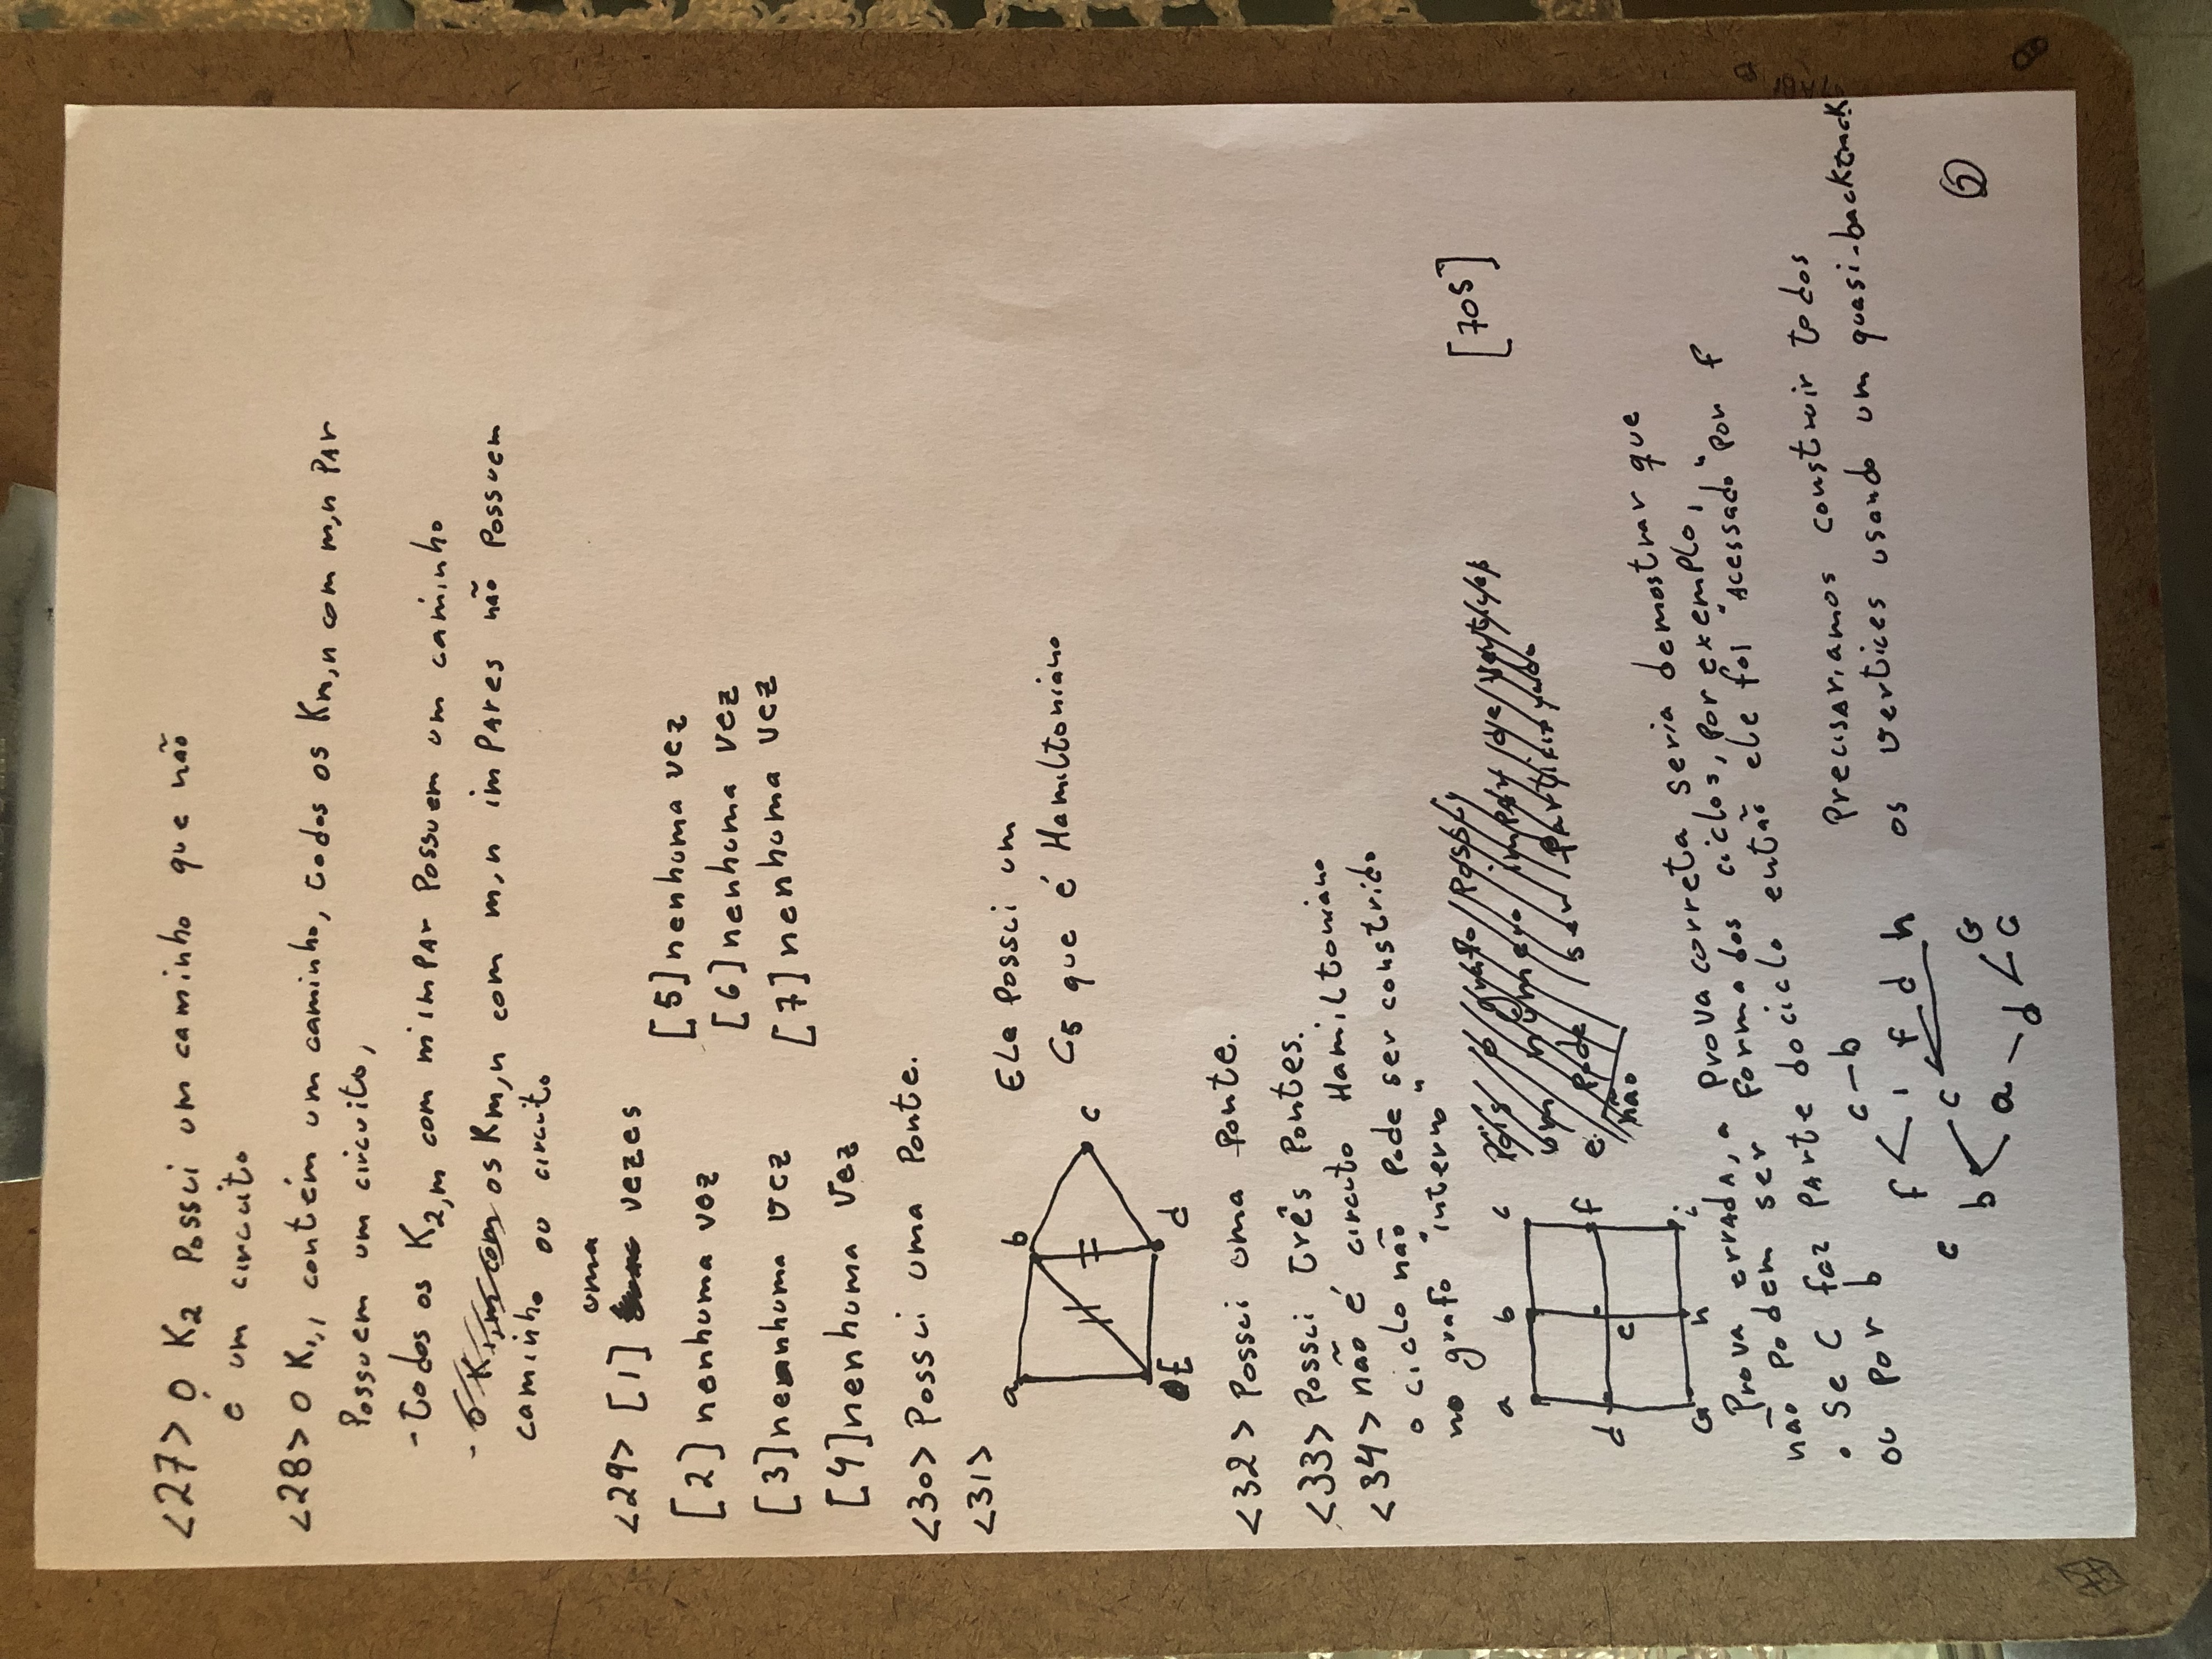 <27> O K2 possui um caminho que não
é um circuito
<28> O K1,1 contém um caminho, todos os Km,n com m,n par
possuem um circuito,
- todos os K2,m com m impar possuem um caminho
- os Km,n com m,n impares não possuem
caminho ou circuito
<29> [1] uma vezes
[2] nenhuma vez
[3] nenhuma vez
[4] nenhuma vez
[5] nenhuma vez
[6] nenhuma vez
[7] nenhuma vez
<30> Possui uma ponte.
<31>
a b
c
E d
Ele possui um
C5 que é Hamiltoniano
<32> Possui uma ponte.
<33> Possui três pontes.
<34> não é circuto Hamiltoniano
o ciclo não pode ser constrido
no grafo "interno"
[705]
a b c
d e f
G h i
Pois o grafo possui
um número impar de vertices
e não pode ser particionado
Prova errada, a prova correta seria demostrar que
não podem ser formados ciclos, por exemplo,
• Se C faz parte do ciclo então ele foi "acessado" por f
ou por b
Precisariamos construir todos
os vertices usando um quasi-backtrack
c – b
f < i f d h
e
b < c
a – d < G
G
5